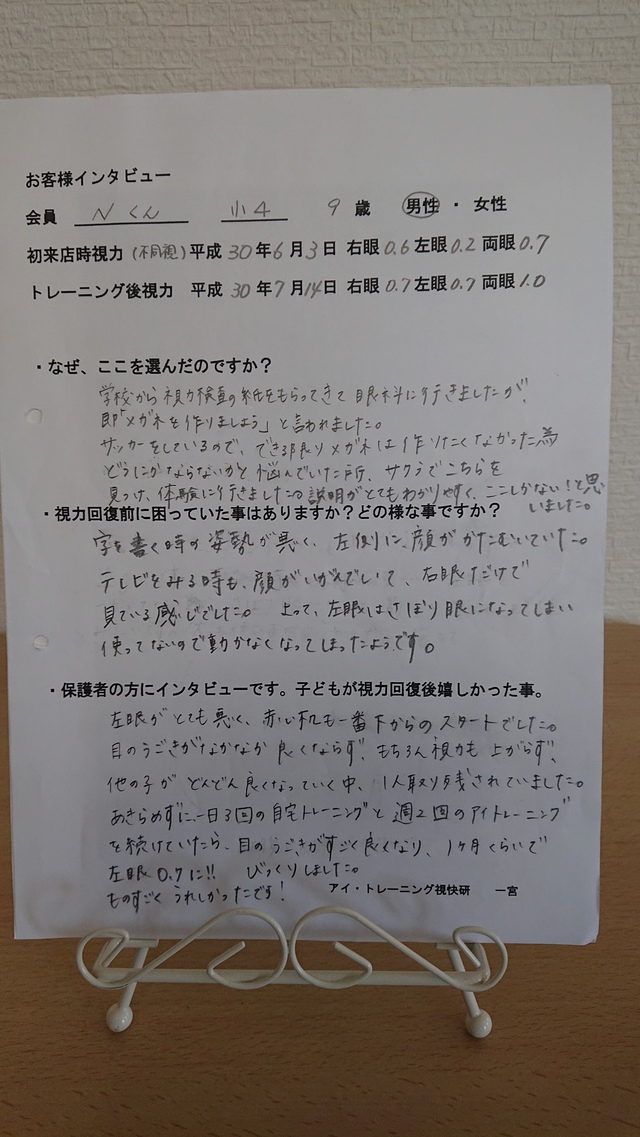 お客様インタビュー
会員 Nくん 小4 9歳 男性・女性
初来店時視力(不同視)平成30年6月3日 右眼0.6左眼0.2両眼0.7
トレーニング後視力 平成30年7月14日 右眼0.7左眼0.7両眼1.0
・なぜ、ここを選んだのですか？
学校から視力検査の紙をもらってきて眼科に行きましたが、
即「メガネを作りましょう」と言われました。
サッカーをしているので、できる限りメガネは作りたくなかった為
どうにかならないかと悩んでいた所、サクラでこちらを
見つけ、体験に行きました。説明がとてもわかりやすく、ここしかない！と思
いました。
・視力回復前に困っていた事はありますか？どの様な事ですか？
字を書く時の姿勢が悪く、左側に顔がかたむいていた。
テレビをみる時も、顔がいがんでいて、右眼だけで
見ている感じでした。よって、左眼はさぼり眼になってしまい
使ってないので動かなくなってしまったようです。
・保護者の方にインタビューです。子どもが視力回復後嬉しかった事。
左眼がとても悪く、赤い机も一番下からのスタートでした。
目のうごきがなかなか良くならず、もちろん視力も上がらず、
他の子がどんどん良くなっていく中、1人取り残されていました。
あきらめずに、一日3回の自宅トレーニングと週2回のアイトレーニング
を続けていたら、目のうごきがすごく良くなり、1ヶ月くらいで
左眼0.7に!! びっくりしました。
ものすごくうれしかったです！
アイ・トレーニング視快研 一宮